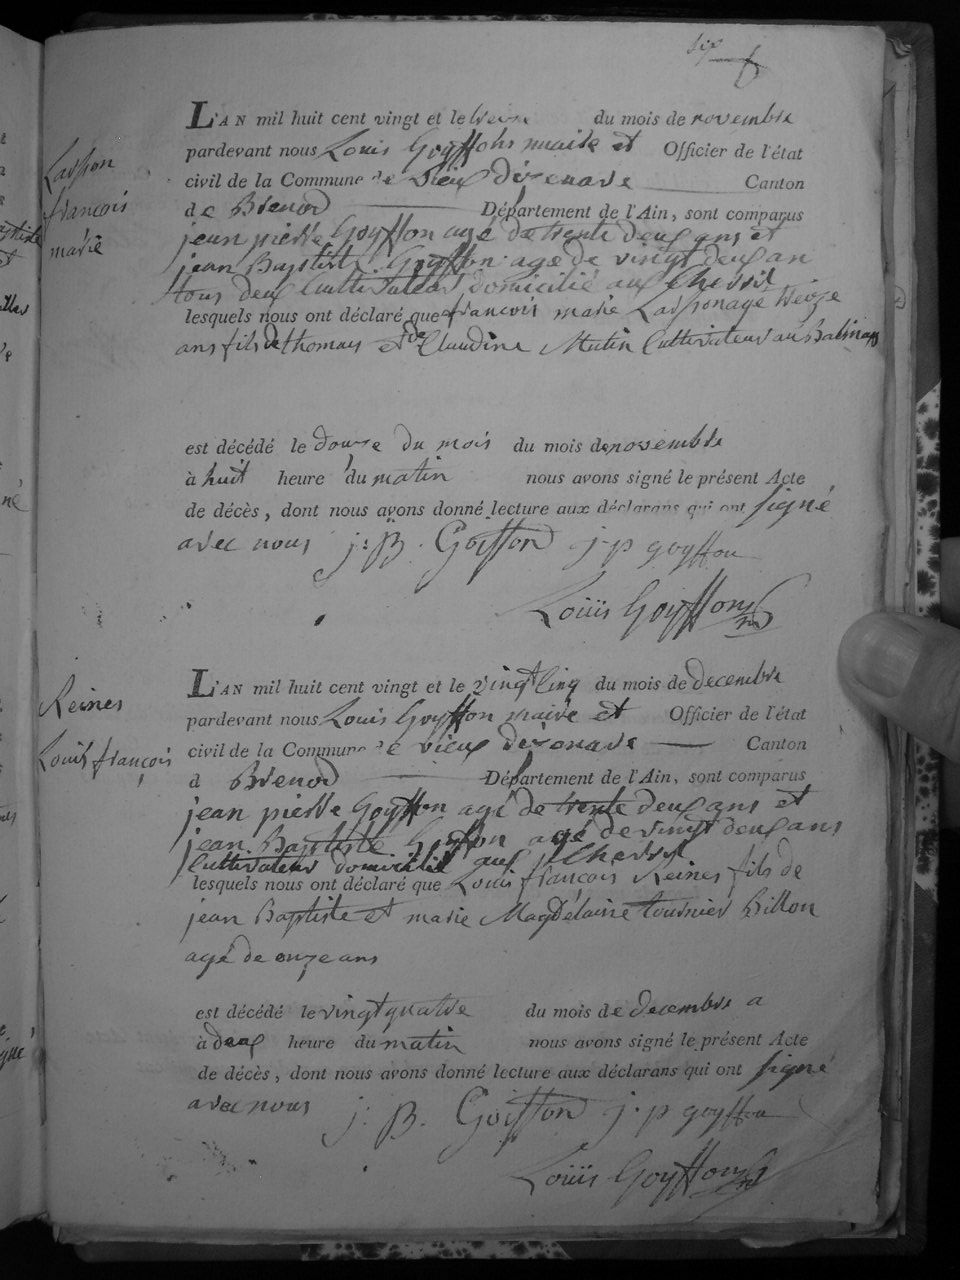 six
L'AN mil huit cent vingt et le treize du mois de novembre
pardevant nous Louis Goyffon maire et Officier de l'état
civil de la Commune de vieux d'izenave Canton
de Brenod Département de l'Ain, sont comparus
jean pierre Goyffon agé de trente deux ans et
jean Baptiste Goyffon agé de vingt deux an
tous deux Cultivateur domicilié aux
lesquels nous ont déclaré que françois marie agé treize
ans fils de thomas et de Claudine Mutin Cultivateur au Balmay
Lasson
françois
marie
est décédé le douze du mois du mois de novembre
à huit heure du matin nous avons signé le présent Acte
de décès, dont nous avons donné lecture aux déclarans qui ont signé
avec nous j: B. Goiffon j. p goyffon
Louis Goyffon
L'AN mil huit cent vingt et le vingt cinq du mois de decembre
pardevant nous Louis Goyffon maire et Officier de l'état
civil de la Commune de vieux d'izonave Canton
d Brenod Département de l'Ain, sont comparus
jean pierre Goyffon agé de trente deux ans et
jean Baptiste Goyffon agé de vingt deux ans
Cultivateur domicilié aux
lesquels nous ont déclaré que Louis françois Reines fils de
jean Baptiste et marie Magdelaine tournier Billon
agé de onze ans
Reines
Louis françois
est décédé le vingt quatre du mois de decembre a
à deux heure du matin nous avons signé le présent Acte
de décès, dont nous avons donné lecture aux déclarans qui ont signé
avec nous j. B. Goiffon j. p goyffon
Louis Goyffon